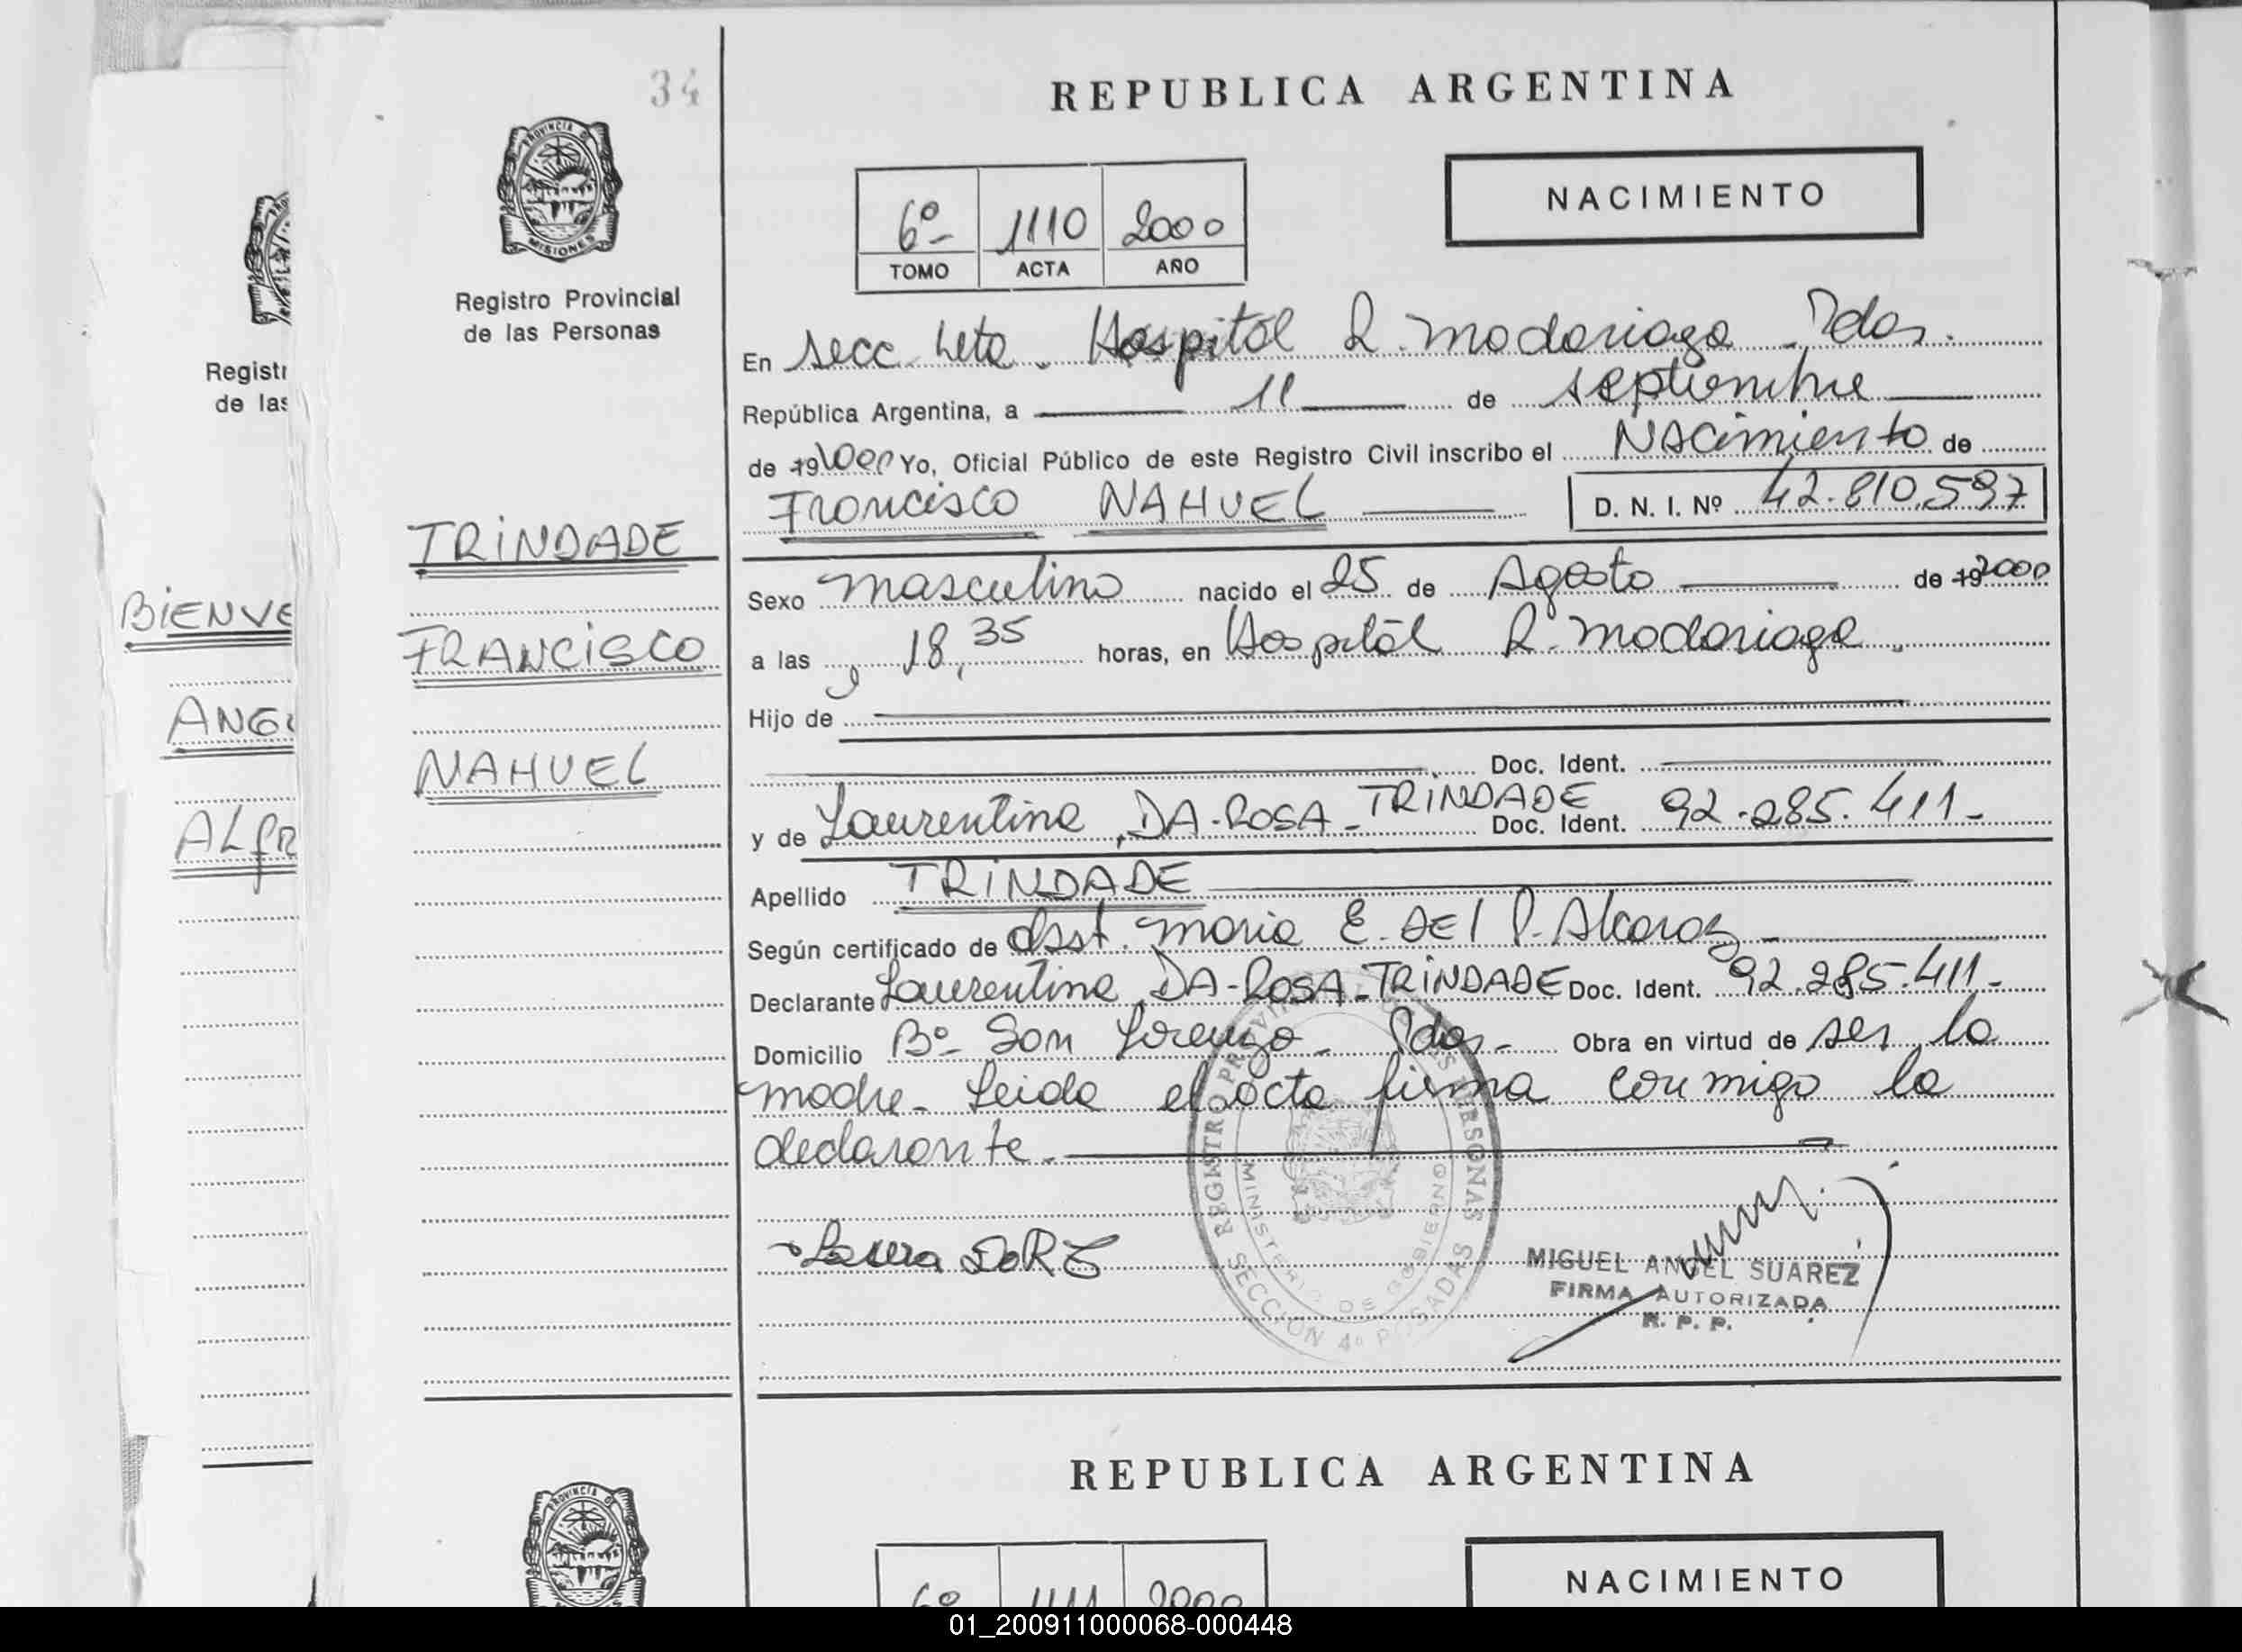 34
PROVINCIA DE
MISIONES
Registro Provincial
de las Personas
REPUBLICA ARGENTINA
6º 1110 2000
TOMO ACTA AÑO
NACIMIENTO
En Secc. 4ta. Hospital R. Madariaga - Pdas.
República Argentina, a 11 de septiembre
de 19 Yo, Oficial Público de este Registro Civil inscribo el Nacimiento de
Francisco NAHUEL D. N. I. Nº 42.810.597
Sexo masculino nacido el 25 de Agosto de 19 2000
a las 18,35 horas, en Hospital R. Madariaga
Hijo de
Doc. Ident.
y de Laurentina DA-ROSA-TRINDADE Doc. Ident. 92.285.411-
Apellido TRINDADE
Según certificado de Asst. Maria E. DEL P. Alcaraz
Declarante Laurentina DA-ROSA-TRINDADE Doc. Ident. 92.285.411-
Domicilio Bº San Lorenzo - Pdas- Obra en virtud de ser la
madre- Leida el acta firma conmigo la
declarante.
TRINDADE
FRANCISCO
NAHUEL
Registr
de las
BIENVE
ANG
ALFR
REGISTRO PROVINCIAL DE LAS PERSONAS
MINISTERIO DE GOBIERNO
SECCION 4º POSADAS
MIGUEL ANGEL SUAREZ
FIRMA AUTORIZADA
R. P. P.
PROVINCIA DE
REPUBLICA ARGENTINA
6º 1111 2000
NACIMIENTO
01_200911000068-000448